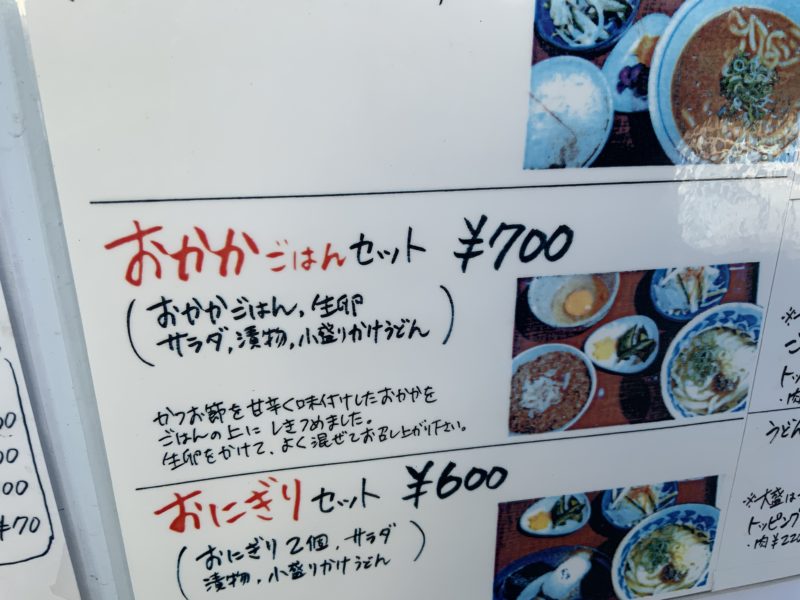 おかかごはんセット ¥700
(おかかごはん, 生卵
サラダ, 漬物, 小盛りかけうどん)
かつお節を甘辛く味付けしたおかかを
ごはんの上にしきつめました。
生卵をかけて、よく混ぜてお召し上がり下さい。
おにぎりセット ¥600
(おにぎり2個, サラダ
漬物, 小盛りかけうどん)
00
00
00
¥70
※
ご
トッ
・肉
うどん
※大盛は
トッピング
・肉¥220